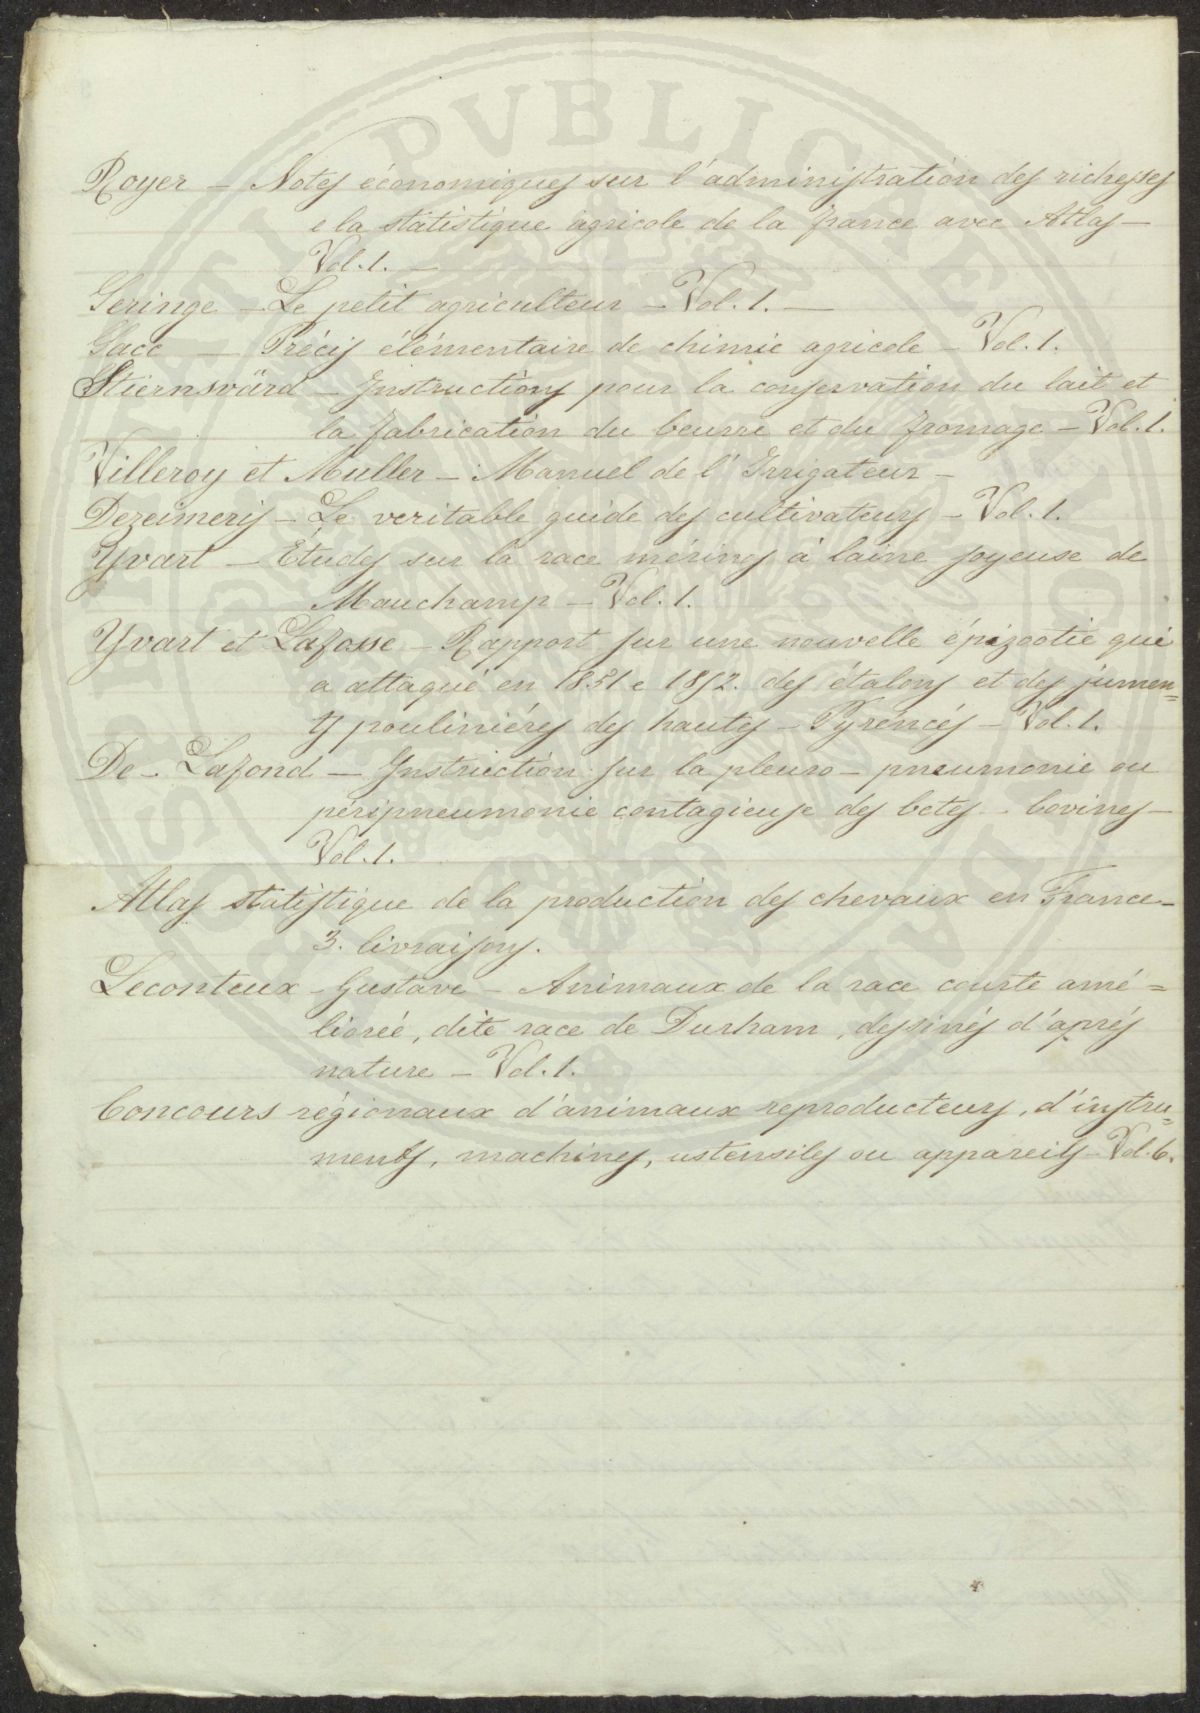 Royer – Notes économiques sur l'administration des richesses
e la statistique agricole de la france avec Atlas –
Vol. 1. –
Seringe – Le petit agriculteur – Vol. 1. –
Sacc – Précis élémentaire de chimie agricole – Vol. 1.
Stiernswärd – Instructions pour la conservation du lait et
la fabrication du beurre et du fromage – Vol. 1.
Villeroy et Muller – Manuel de l'Irrigateur –
Dezeimeris – Le veritable guide des cultivateurs – Vol. 1.
Yvart – Études sur la race mérinos à laine soyeuse de
Mauchamp – Vol. 1.
Yvart et Lafosse – Rapport sur une nouvelle épizootie qui
a attaqué en 1851 e 1852. des étalons et des jumen=
ts pouliniéres des hautes – Pyrenées – Vol. 1.
De – Lafond – Instruction sur la pleuro – pneumonie ou
péripneumonie contagieuse des betes – bovines –
Vol. 1.
Atlas statistique de la production des chevaux en France –
3. livraisons.
Leconteux – Gustave – Animaux de la race courte amé=
liorée, dite race de Durham, dessinés d'aprés
nature – Vol. 1.
Concours régionaux d'animaux reproducteurs, d'instru=
ments, machines, ustensiles ou appareils – Vol. 6.